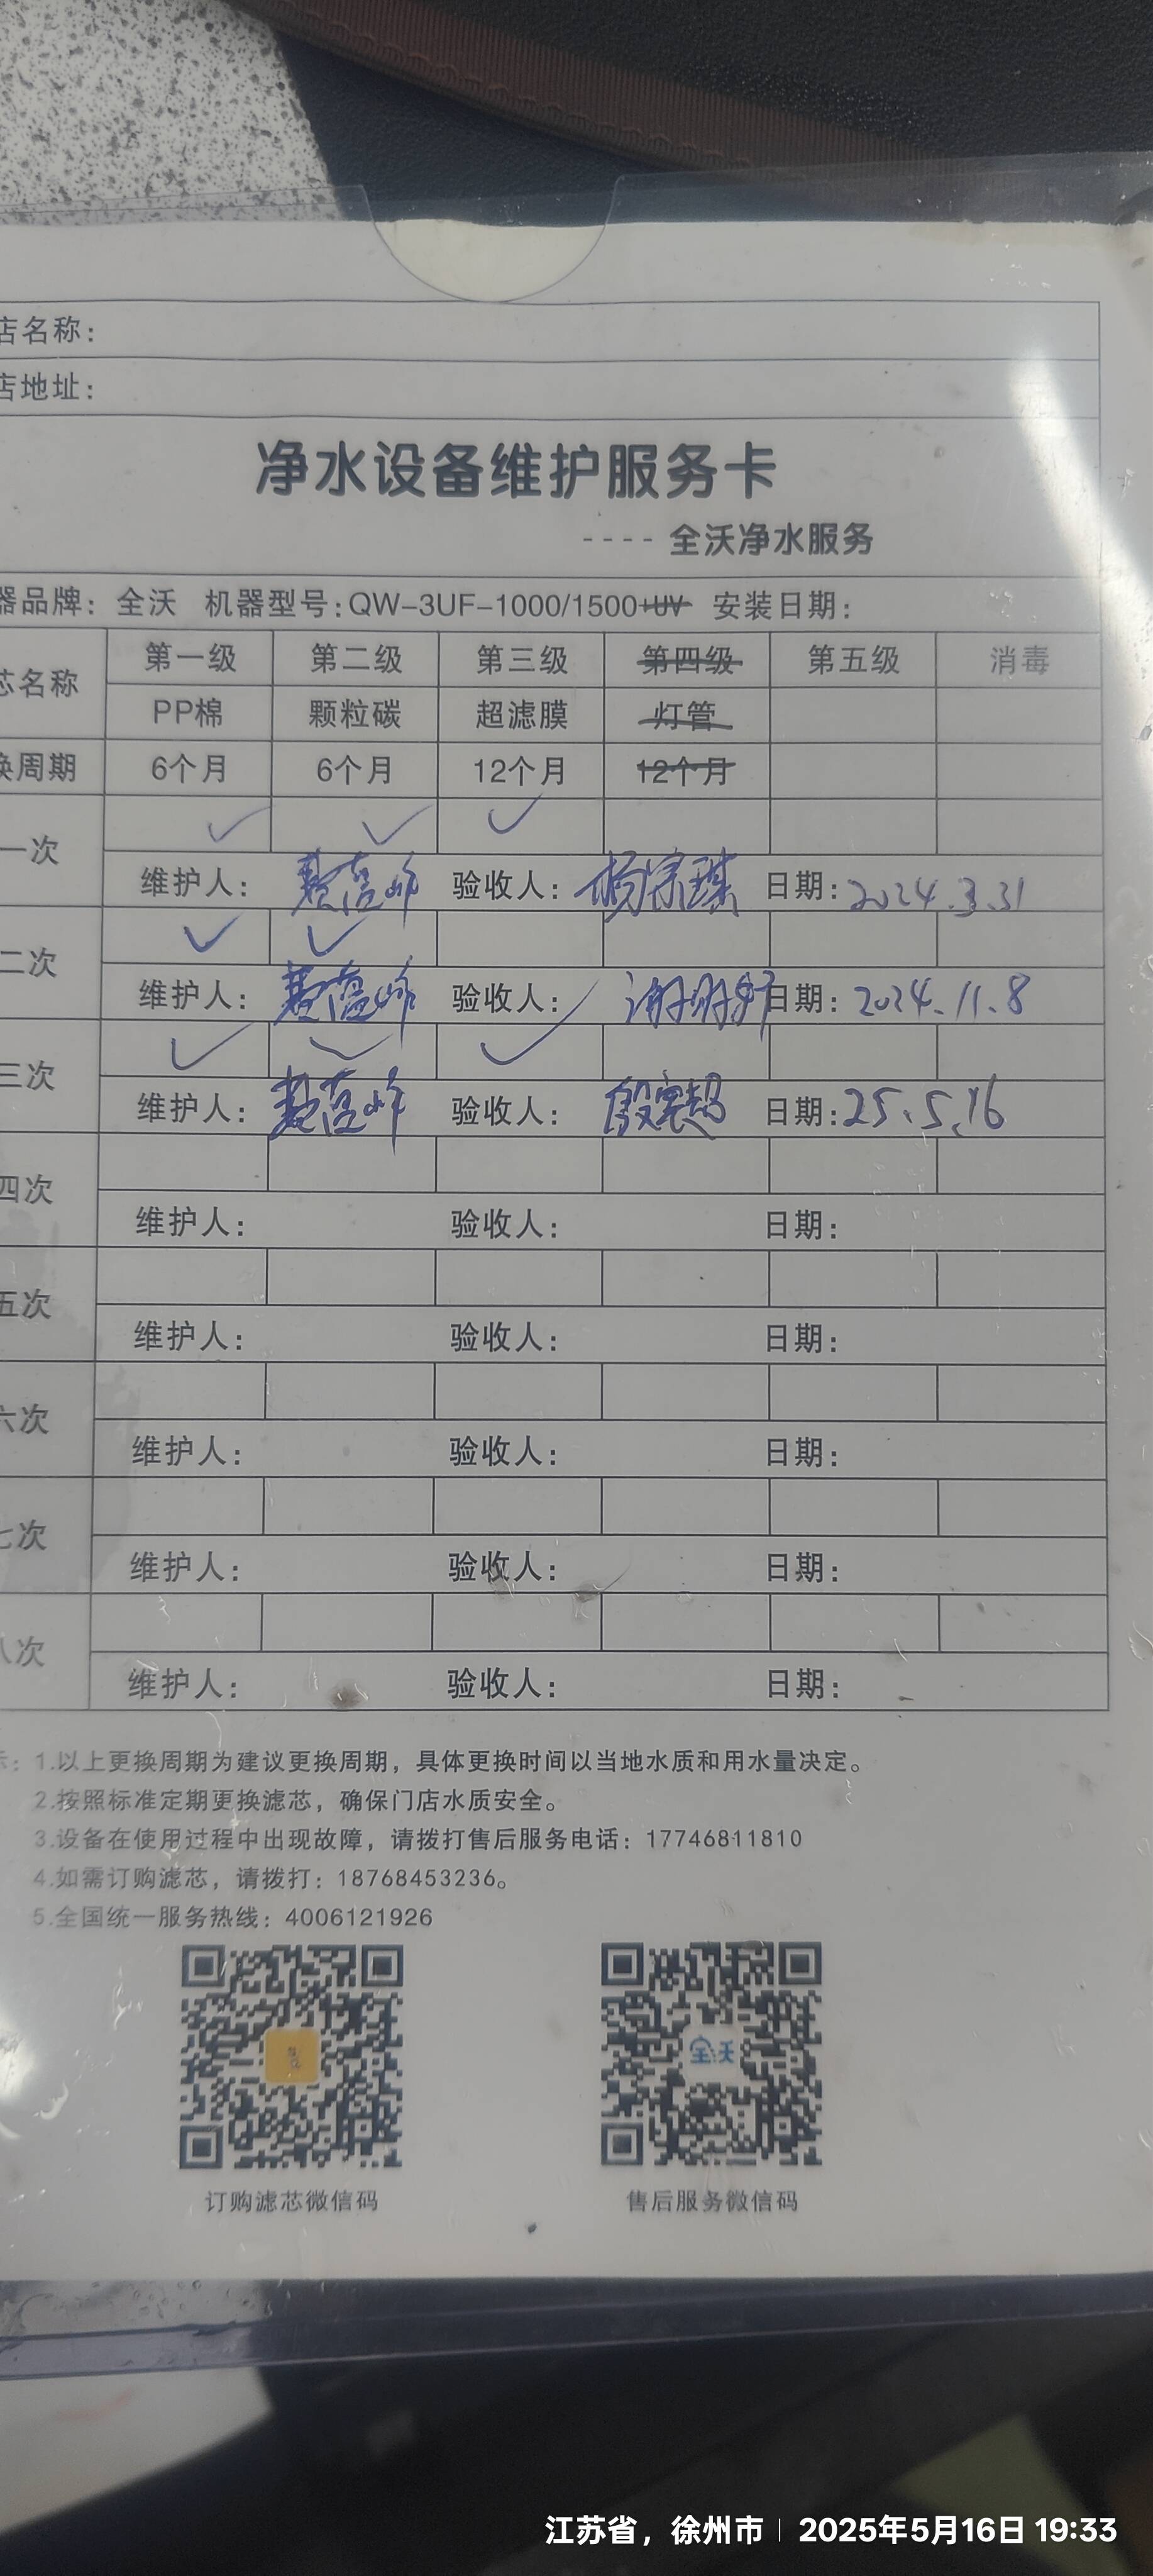 店名称：
店地址：
净水设备维护服务卡
---- 全沃净水服务
器品牌：全沃 机器型号：QW-3UF-1000/1500+UV 安装日期：
芯名称 第一级 第二级 第三级 第四级 第五级 消毒
PP棉 颗粒碳 超滤膜 灯管
换周期 6个月 6个月 12个月 12个月
一次 ✓ ✓ ✓
维护人： 验收人：杨宗琪 日期：2024.3.31
二次 ✓ ✓
维护人： 验收人： 日期：2024.11.8
三次 ✓ ✓ ✓
维护人： 验收人： 日期：25.5.16
四次
维护人： 验收人： 日期：
五次
维护人： 验收人： 日期：
六次
维护人： 验收人： 日期：
七次
维护人： 验收人： 日期：
八次
维护人： 验收人： 日期：
示：1.以上更换周期为建议更换周期，具体更换时间以当地水质和用水量决定。
2.按照标准定期更换滤芯，确保门店水质安全。
3.设备在使用过程中出现故障，请拨打售后服务电话：17746811810
4.如需订购滤芯，请拨打：18768453236。
5.全国统一服务热线：4006121926
全沃
订购滤芯微信码 售后服务微信码
江苏省，徐州市 | 2025年5月16日 19:33